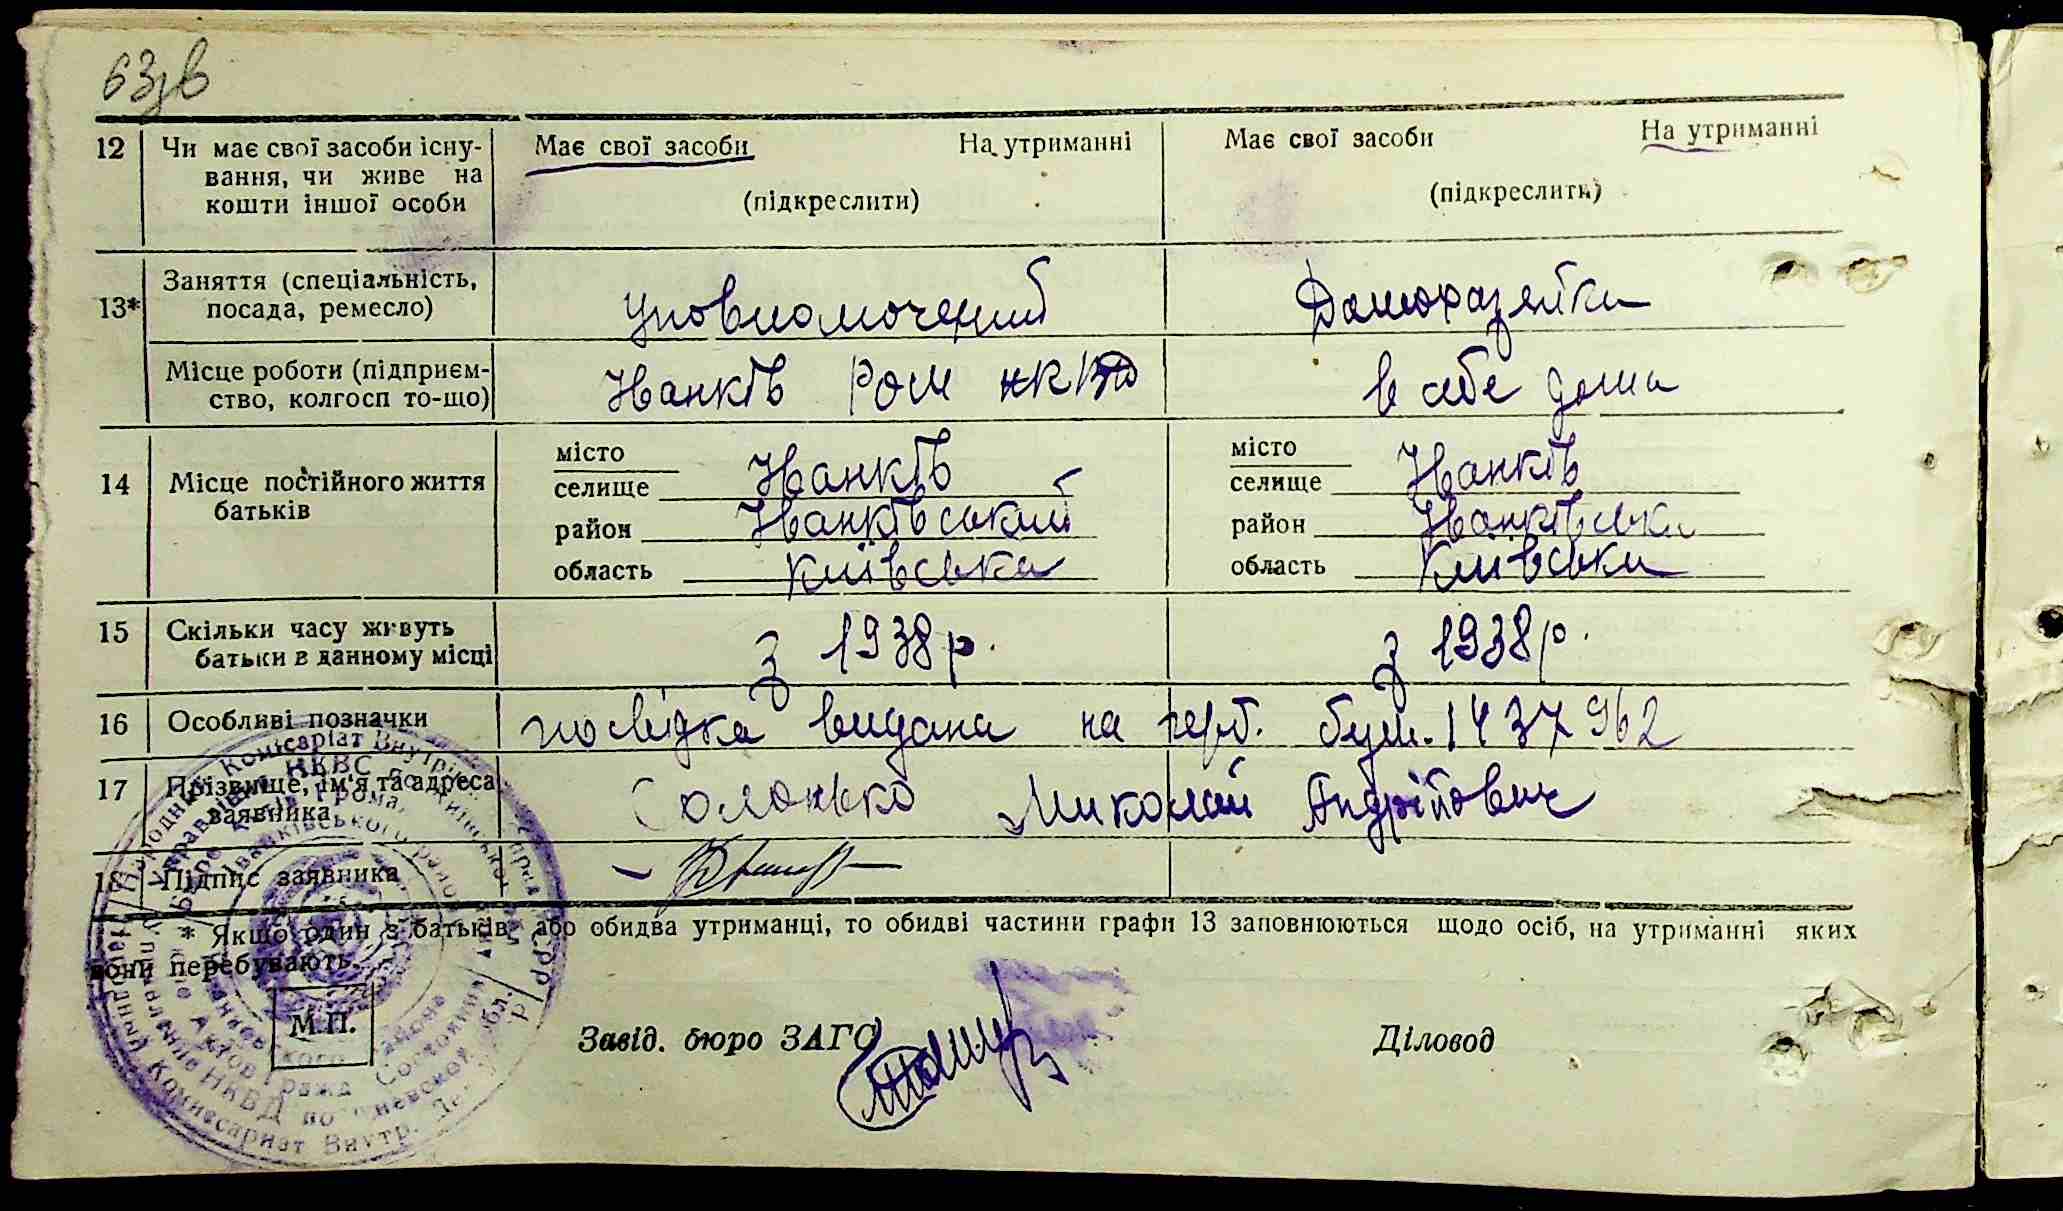 63зв
12 Чи має свої засоби існу- Має свої засоби На утриманні Має свої засоби На утриманні
вання, чи живе на
кошти іншої особи (підкреслити) (підкреслити)
13* Заняття (спеціальність,
посада, ремесло) Уповномочений Домохазяйка
Місце роботи (підприєм-
ство, колгосп то-що) Іванків РОМ НКВД в себе дома
14 Місце постійного життя
батьків
місто місто
селище Іванків селище Іванків
район Іванківський район Іванківська
область Київська область Київська
15 Скільки часу живуть
батьки в данному місці з 1938р. з 1938р.
16 Особливі позначки посвідка видана на герб. бум. 1437962
17 Прізвище, ім'я та адреса
заявника Солонько Миколай Андрійович
18 Підпис заявника
* Якщо один з батьків або обидва утриманці, то обидві частини графи 13 заповнюються щодо осіб, на утриманні яких
вони перебувають.
М.П. Завід. бюро ЗАГС Діловод
Народний Комісаріат Внутр. Справ УСРР
Управління НКВС по Київській обл.
Бюро Актів Грома
Іванківського району
Народный Комиссариат Внутр. Дел
Управление НКВД по Киевской обл.
Бюро Актов Гражд. Состояния